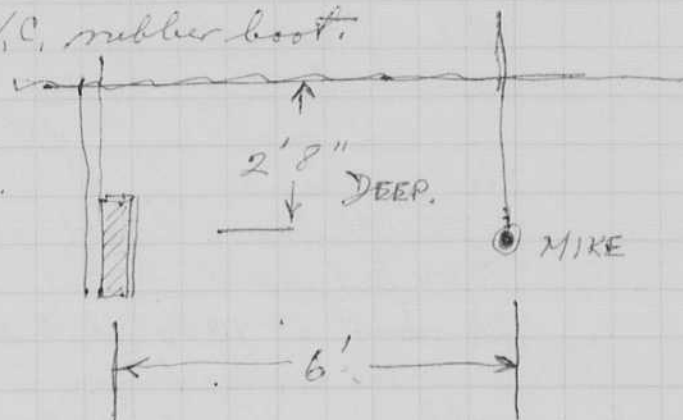 .C. rubber boot.
2'8"
DEEP.
MIKE
6'